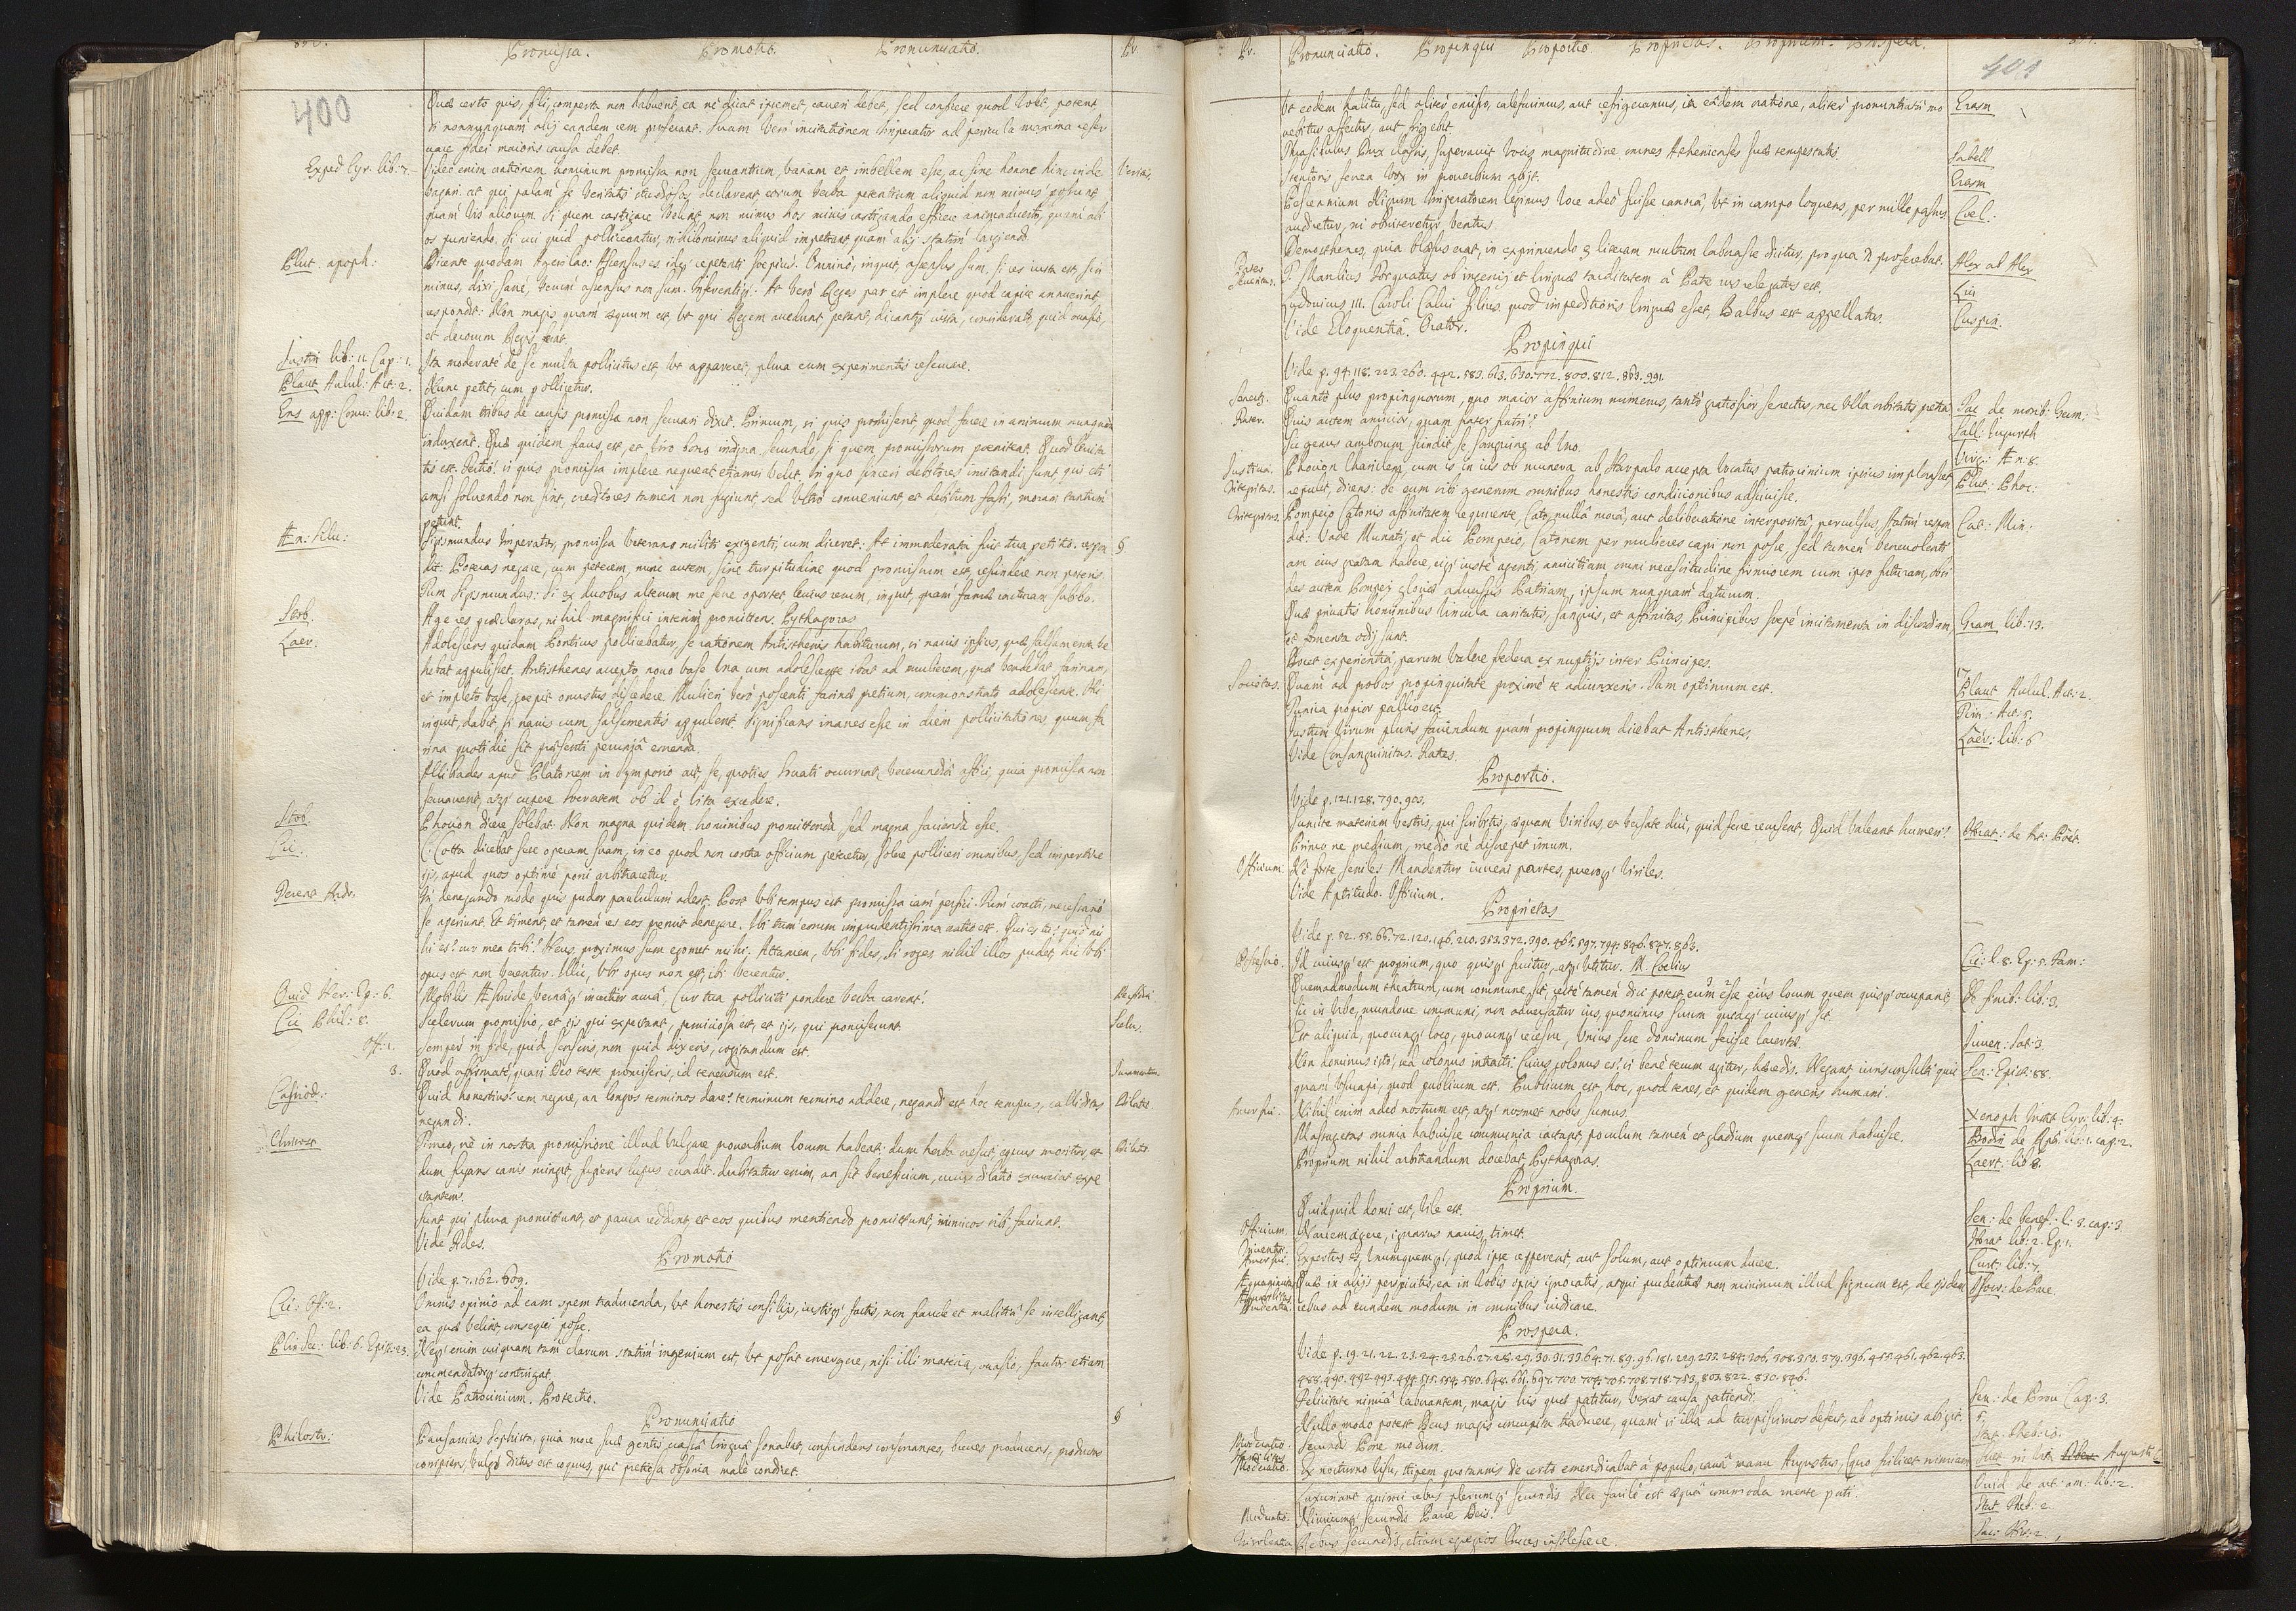 Promissa. Promotio. Pronunciatio. Pr.
400
Quæ certo quis, sibi comperta non habuerit, ea ne dicat ipsemet, caueri debet, sed conficere quod volet, poterit
si nonnunquam alij eandem rem proferant. Suam vero incitationem Imperator ad pericula maxima reser
uare fidei maioris causa debet.
Exped Cyr. lib. 7. Video enim orationem hominum promissa non seruantium, vanam et imbellem esse, ac sine honore hinc inde
vagari. at qui palam se veritatis studiosos declarent eorum verba petentium aliquid non minus possunt,
quam vis aliorum. Si quem castigare velint non minus hos minis castigando efficere animaduerto, quam ali
os puniendo. Si cui quid polliceantur, nihilominus aliquid impetrant quam alij statim largiendo.
Plut. apoph: Dicente quodam Agesilao: Assensus es idq repetenti sæpius. Omnino, inquit, assensus sum, si res iusta est, sin
minus, dixi sane, verum assensus non sum. Inferenti: At vero Reges par est implere quod capite annuerint
respondit: Non magis quam æquum est, ut qui Regem accedunt, petant, dicantq iusta,
et decorum Regis
Justin lib: 11 Cap: 1. Ita moderate de se multa pollicitus est, ut appareret, plura eum experimentis reseruare.
Plaut Aulul: Act: 2. Nunc petit, cum pollicetur.
Ens app: Conu: lib: 2. Quidam tribus de causis promissa non seruari dixit. Primum, si quis promiserit quod facere in animum nunquam
induxerit. Quæ quidem fraus est, et viro bono indigna. Secundo, si quem promissorum pœniteat. Quod leuita
tis est. Tertio, si quis promissa implere nequeat etiamsi velit. In quo sinceri debitores imitandi sunt, qui eti
amsi soluendo non sint, creditores tamen non fugiunt, sed ultro conueniunt, et debitum fassi, moram tantum
petunt.
Æn: Silu: Sigismundus Imperator, promissa veterano militi exigenti, cum diceret: At immoderata fuit tua petitio. respon
dit: Poteras negare, cum peterem, nunc autem, sine turpitudine quod promissum est, rescindere non poteris.
Tum Sigismundus: Si ex duobus alterum me ferre oportet, leuius rerum, inquit, quam famæ iacturam subibo.
Stob. Age res præclaras, nihil magnifici interim promittens. Pythagoras
Laer. Adolescens quidam Ponticus pollicebatur, se rationem Antisthenis habiturum, si nauis ipsius, quæ salsamenta ve
hebat appulisset. Antisthenes accepto nouo vase una cum adolescente ibat ad mulierem, quæ vendebat farinam,
et impleto vase, cœpit onustus discedere. Mulieri vero poscenti farinæ pretium, commonstrato adolescente. Hic
inquit, dabit, si nauis cum salsamentis appulerit. significans inanes esse in diem pollicitationes, quum fa
rina quotidie sit præsenti pecuniâ emenda.
Alcibiades apud Platonem in Symposio ait, se, quoties Socrati occurrat, verecundiâ affici, quia promissa non
seruauerit, atq cupere Socratem ob id è vita excedere.
Stob. Phocion dicere solebat: Non magna quidem hominibus promittenda, sed magna facienda esse.
Cic. C: Cotta dicebat suæ operam suam, in eo quod non contra officium peteretur, solere polliceri omnibus, sed impertire
ijs, apud quos optime poni arbitraretur.
Terent Andr. In denegando modo quis pudor paululum adest. Post ubi tempus est promissa iam perfici. Tum coacti, necessario
se aperiunt. Et timent, et tamen res eos premit denegare. Ibi tum eorum impudentissima oratio est. Qui es tu? quid mi
hi es? cur meam tibi? Heus, proximus sum egomet mihi. Attamen, ubi fides, si roges nihil illos pudet, hic ubi
opus est non verentur. Illic, ubi opus non est, ibi verentur.
Ouid Her: Ep: 6. Mobilis Æsonide, vernâq incertior aurâ, Cur tua polliciti pondere verba carent?
Cic Phil: 8. Scelerum promissio, et ijs qui expectant, perniciosa est, et ijs, qui promittunt. Scelus.
Off: 1. Semper in fide, quid senseris, non quid dixeris, cogitandum est.
3. Quod affirmate, quasi Deo teste promiseris, id tenendum est. Juramentum
Cassiod: Quid honestius? rem negare, an longos terminos dare? terminum termino addere, negandi est hoc tempus, calliditas
negandi. Dilatio.
Timeo, ne in nostra promissione illud vulgare prouerbium locum habeat: dum herba crescit, equus moritur, et
dum fugans canis mingit, fugiens lupus euadit. dubitatur enim, an sit beneficium, cuius dilatio excruciat expe
ctantem. Dilatio
Sunt qui plura promittunt, et pauca reddunt, et eos quibus mentiendo promittunt, inimicos sibi faciunt.
Vide Fides.
Promotio
Vide p. 7. 162. 609.
Cic: Off: 2. Omnis opinio ad eam spem traducenda, ut honestis consilijs, iustisq factis, non fraude et malitia se intelligant,
ea quæ velint, consequi posse.
Plin Sec: lib: 6. Epist: 23. Neq enim cuiquam tam clarum statim ingenium est, ut possit emergere, nisi illi materia, occasio, fautor etiam
commendatorq contingat.
Vide Patrocinium. Protectio.
Pronunciatio
Philostr: Pausanias Sophista, quia more suæ gentis, crassâ linguâ sonabat, confundens consonantes, breues producens, productas
corripiens, vulgo dictus est coquus, qui pretiosa obsonia male condiret.
Pr. Pronunciatio. Propinqui Proportio. Proprietas. Proprium. Prospera.
401
Ut eodem halitu, sed aliter emisso, calefacimus, aut refrigeramus, ita eâdem oratione, aliter pronuntiatâ mo
uebitur affectus, aut frigebit. Erasm
Thrasibulus Dux classis, superauit vocis magnitudine omnes Athenienses suæ tempestatis. Sabell
Stentoris ferrea vox in prouerbium abijt. Erasm
Pescennium Nigrum Imperatorem legimus voce adeo fuisse canorâ, ut in campo loquens, per mille passus,
audiretur, ni obsisteretur ventus Coel:
Demosthenes, quia blæsus erat, in exprimenda ρ literam multum laborasse dicitur, pro qua λ proferebat. Alex ab Alex
T. Manlius Torquatus ob ingenij et linguæ tarditatem à Patre rus relegatus est. Liu
Ludouicus III. Caroli Calui filius, quod impeditioris linguæ esset, Balbus est appellatus. Cuspin.
Vide Eloquentia. Orator.
Propinqui
Vide p. 94. 118. 223. 260. 442. 583. 613. 630. 772. 800. 812. 863. 991
Senect. Quanto plus propinquorum, quo maior affinium numerus, tanto gratiosior senectus, nec ulla orbitatis pretia Tac de morib: Germ:
Pater. Quis autem amicior, quam frater fratri? Sall: Jugurth
Sic genus amborum scindit se sanguine ab uno. Virg: Æn: 8.
Justitia. Phocion Charidem, cum is in ius ob munera ab Harpalo accepta vocatus patrocinium ipsius implorasset,
Integritas. repulit, dicens: Se eum sibi generum omnibus honestis condicionibus adsciuisse. Plut: Phoc:
Integritas. Pompeio Catonis affinitatem requirente, Cato nullâ morâ, aut deliberatione interpositâ, perculsus, statim respon
dit: Vade Munati, et dic Pompeio, Catonem per mulieres capi non posse, sed tamen beneuolenti
am eius gratam habere, eiq iuste agenti, amicitiam omni necessitudine firmiorem cum ipso futuram, obsi
des autem Pompeij gloriæ aduersus Patriam, ipsum nunquam daturum. Cat: Min.
Quæ priuatis hominibus vincula caritatis, sanguis, et affinitas, Principibus sæpe incitamenta in discordiam,
et fomenta odij sunt. Gram lib: 13.
Docet experientia, parum valere fœdera ex nuptijs inter Principes.
Societas. Quam ad probos propinquitate proxime te adiunxeris. Tam optimum est. Plaut Aulul. Act: 2.
Tunica propior pallio est. Trin: Act: 5.
Justum virum pluris faciendum quam propinquum dicebat Antisthenes. Laer: lib: 6
Vide Consanguinitas. Fratres.
Proportio.
Vide p. 121. 128. 790. 900.
Sumite materiam vestris, qui scribitis, æquam viribus, et versate diu, quid ferre recusent, Quid valeant humeri? Horat: de Art: Poët.
Primo ne medium, medio ne discrepet imum.
Officium. Ne forte seniles Mandentur iuueni partes, pueroq viriles.
Vide Aptitudo. Officium.
Proprietas
Vide p. 52. 55. 66. 72. 120. 146. 210. 353. 372. 390. 465. 597. 794. 846. 847. 863.
Possessio. Id cuiusq est proprium, quo quisq fruitur, atq vtitur. M. Coelius Cic: l. 8. Ep: 5. Fam:
Quemadmodum theatrum, cum commune sit, recte tamen dici potest eum esse eius locum quem quisq occuparit,
sic in vrbe, mundoue communi, non aduersatur ius, quominus suum quidq cuiusq sit. De finib: lib: 3.
Est aliquid, quocunq loco, quocunq recessu, Vnius sese dominum fecisse lacertæ. Juuen: Sat: 3.
Non dominus isto, sed colonus intrasti. Cuius colonus es? si bene tecum agitur, hæredis. Negant iurisconsulti quic
quam vsucapi, quod publicum est. Publicum est hoc, quod tenes, et quidem generis humani. Sen: Epist: 88.
Amor sui. Nihil enim adeo nostrum est, atq nosmet nobis sumus. Xenoph Instit Cyr: lib: 4.
Massagetas omnia habuisse communia constat, poculum tamen et gladium quemq suum habuisse. Bodin de Rpb: lib: 1. cap: 2.
Proprium nihil arbitrandum docebat Pythagoras. Laert: lib 8.
Proprium.
Quidquid domi est, vile est. Sen: de benef: l: 3. cap: 3.
Officium. Nauem agere, ignarus nauis, timet. Horat lib: 2. Ep: 1.
Amor sui. Expertus es, unumquemq, quod ipse repperent, aut solum, aut optimum ducere. Curt: lib: 7.
Quæ in alijs perspicitis, ea in vobis ipsis ignoratis, atqui prudentiæ non minimum illud signum est, de ijsdem
Prudentia. rebus ad eundem modum in omnibus iudicare. Isocr: de Pace.
Prospera.
Vide p. 19. 21. 22. 23. 24. 25. 26. 27. 28. 29. 30. 31. 33. 64. 71. 89. 96. 181. 229. 233. 284. 306. 308. 350. 379. 396. 455. 461. 462. 463.
488. 490. 492 493. 494. 515. 554. 580. 648. 661. 697. 700. 704. 705. 708. 718. 753. 803. 822. 830. 846.
Felicitate nimiâ laborantem, magis his quæ patitur, vexat causa patiendi. Sen: de Prou Cap: 3.
Nullo modo potest Deus magis concupita traducere, quam si illa ad turpissimos defert, ab optimis abigit. 5.
Moderatio. Secundis Pone modum. Stat. Theb: 10.
Moderatio. Ex nocturno visu, stipem quotannis die certo emendicabat à populo, cauâ manu Augustus, (quo scilicet nimiam Suet in vita Augusti
Luxuriant animi rebus plerumq secundis Nec facile est æquâ commoda mente pati. Ouid de art: am: lib: 2.
Moderatio. Nimiumq secundis Parce Deis! Stat Theb: 2.
Insolentia Rebus secundis, etiam egregios Duces insolescere. Tac: Hist: 2.